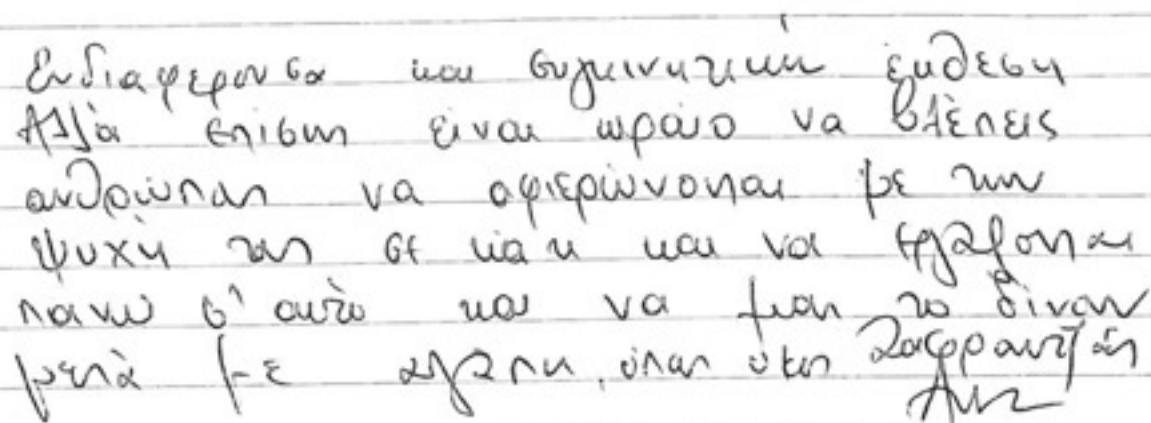 Ενδιαφέρουσα και συγκινητική έκθεση
Αλλά επίσης είναι ωραίο να βλέπεις
ανθρώπους να αφιερώνονται με την
ψυχή τους σε κάτι και να εργάζονται
πάνω σ' αυτό και να μας το δίνουν
μετά με αγάπη, όπως